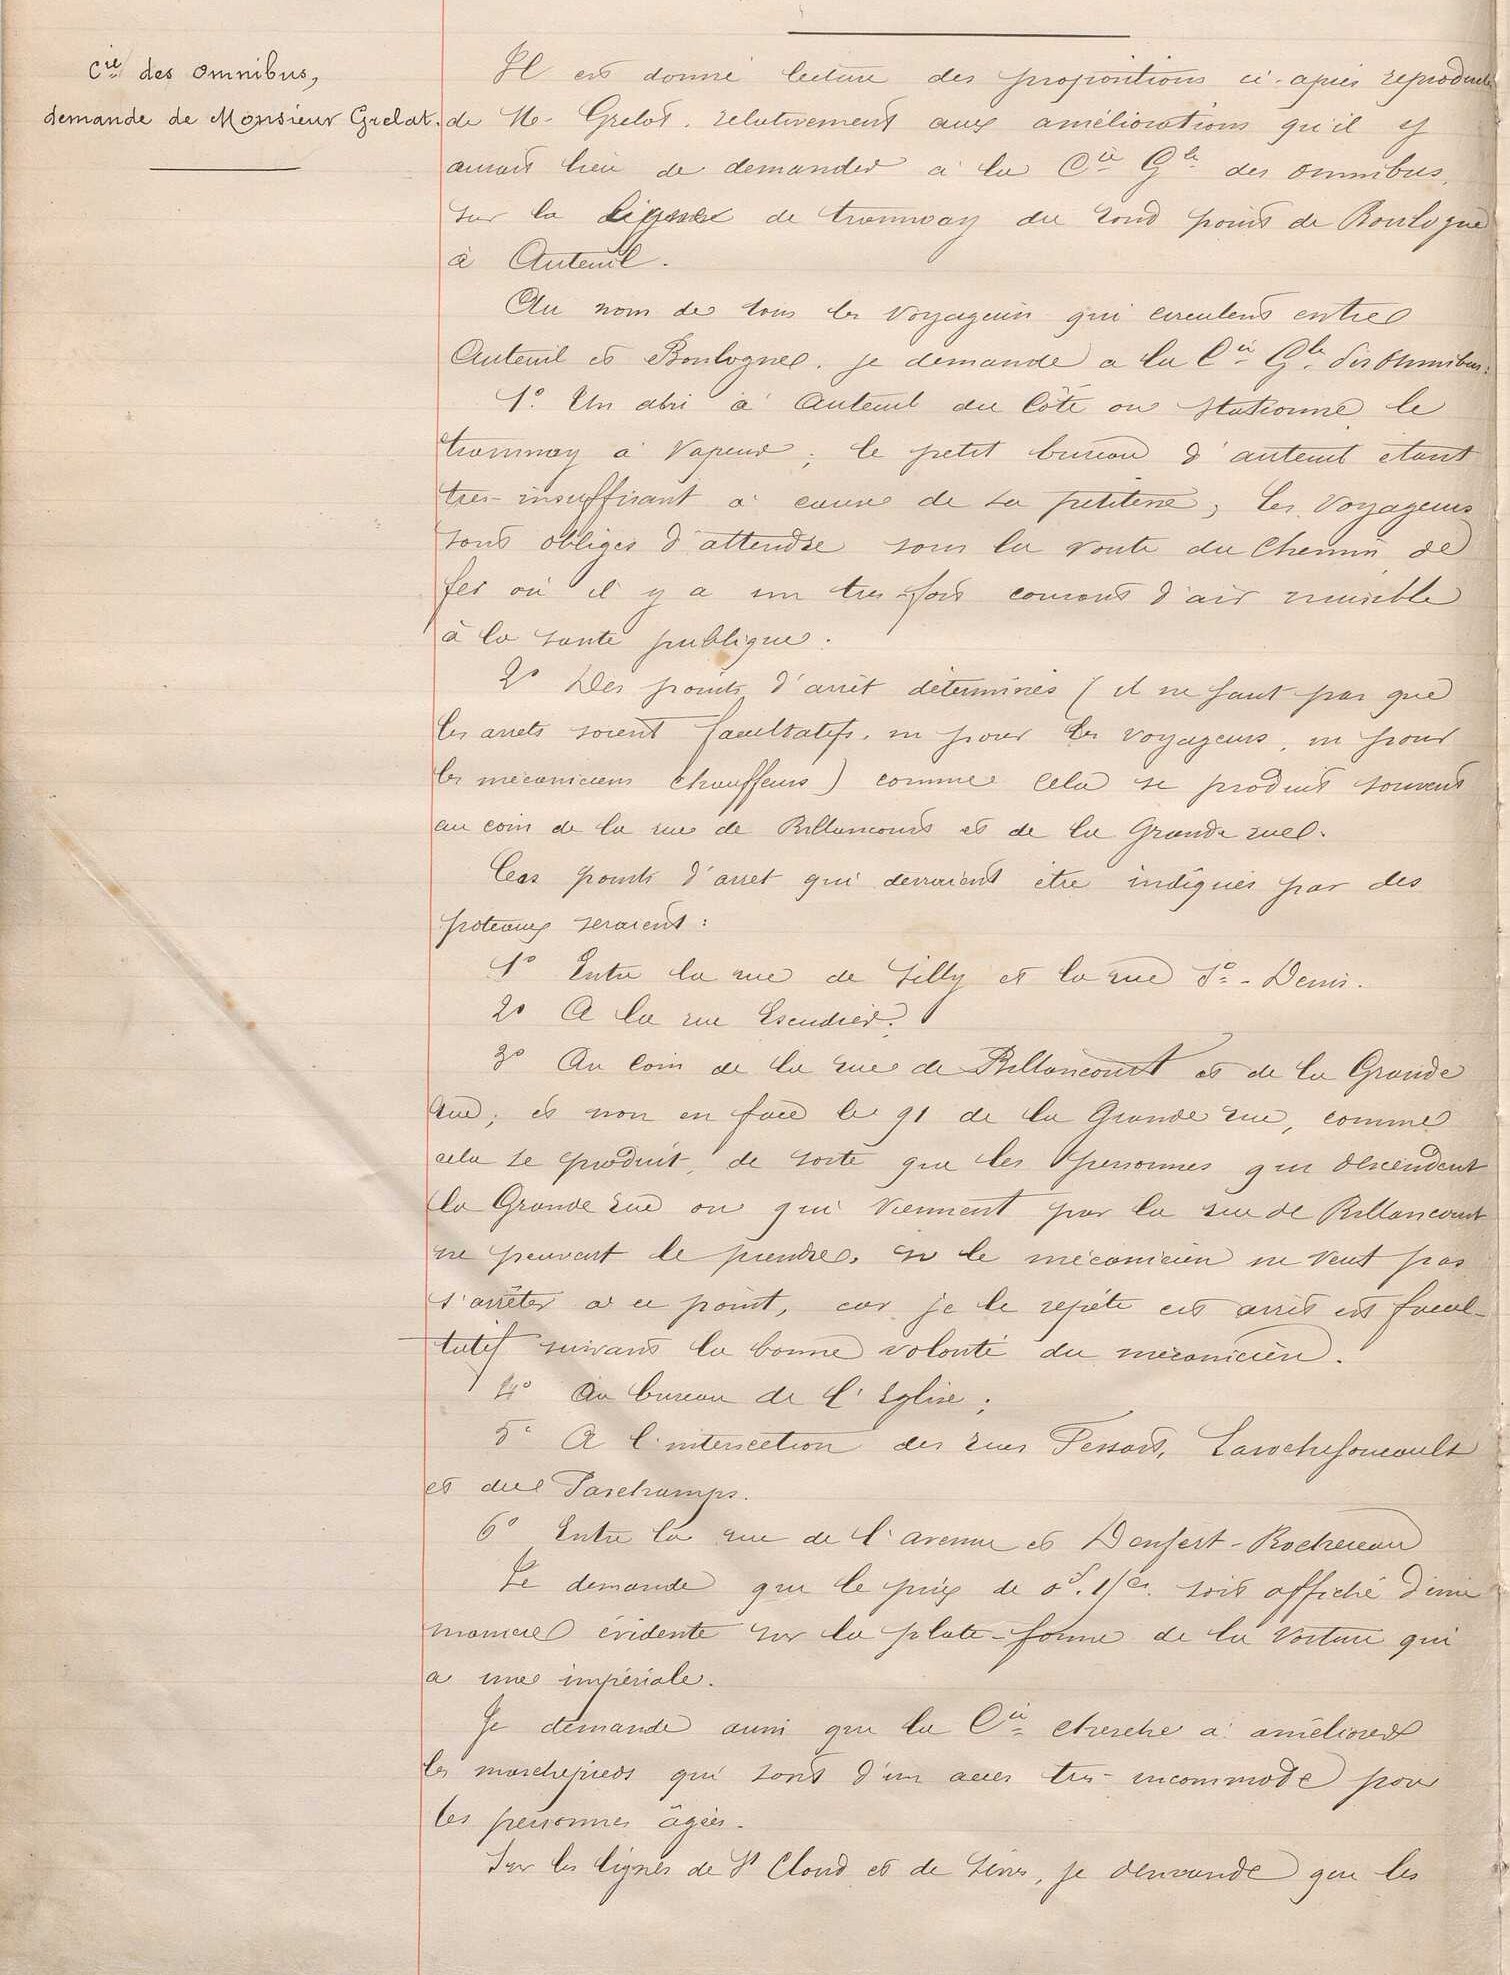 Cie des Omnibus,
demande de Monsieur Grelat.
Il est donné lecture des propositions ci-après reproduites
de M. Grelot, relativement aux améliorations qu'il y
aurait lieu de demander à la Cie Gle des Omnibus,
sur la ligne de tramway du rond point de Boulogne
à Auteuil.
Au nom de tous les voyageurs qui circulent entre
Auteuil et Boulogne, je demande a la Cie Gle des Omnibus:
1° Un abri à Auteuil du côté où stationne le
tramway à vapeur; le petit bureau d'auteuil étant
tres-insuffisant à cause de sa petitesse, les voyageurs
sont obligés d'attendre sous la voute du chemin de
fer où il y a un tres-fort courant d'air nuisible
à la santé publique.
2° Des points d'arrêt déterminés (il ne faut pas que
les arrets soient facultatifs, ni pour les voyageurs, ni pour
les mécaniciens chauffeurs) comme cela se produit souvent
au coin de la rue de Billancourt et de la Grande rue.
Ces points d'arret qui devraient être indiqués par des
poteaux seraient:
1° Entre la rue de Silly et la rue St-Denis.
2° A la rue Escudier.
3° Au coin de la rue de Billancourt et de la Grande
rue; et non en face le 91 de la Grande rue, comme
cela se produit, de sorte que les personnes qui descendent
la Grande rue ou qui viennent par la rue de Billancourt
ne peuvent le prendre, si le mécanicien ne veut pas
s'arrêter à ce point, car je le répète cet arrêt est facul-
tatif suivant la bonne volonté du mécanicien.
4° Au bureau de l'Eglise;
5° A l'intersection des rues Fessart, Larochefoucault
et du Parchamps.
6° Entre la rue de l'avenue et Denfert-Rochereau
Je demande que le prix de 0f.15c. soit affiché d'une
maniere évidente sur la plate-forme de la voiture qui
a une impériale.
Je demande aussi que la Cie cherche à améliorer
les marchepieds qui sont d'un acces tres-incommode pour
les personnes âgées.
Sur les lignes de St Cloud et de Sèvres, je demande que les